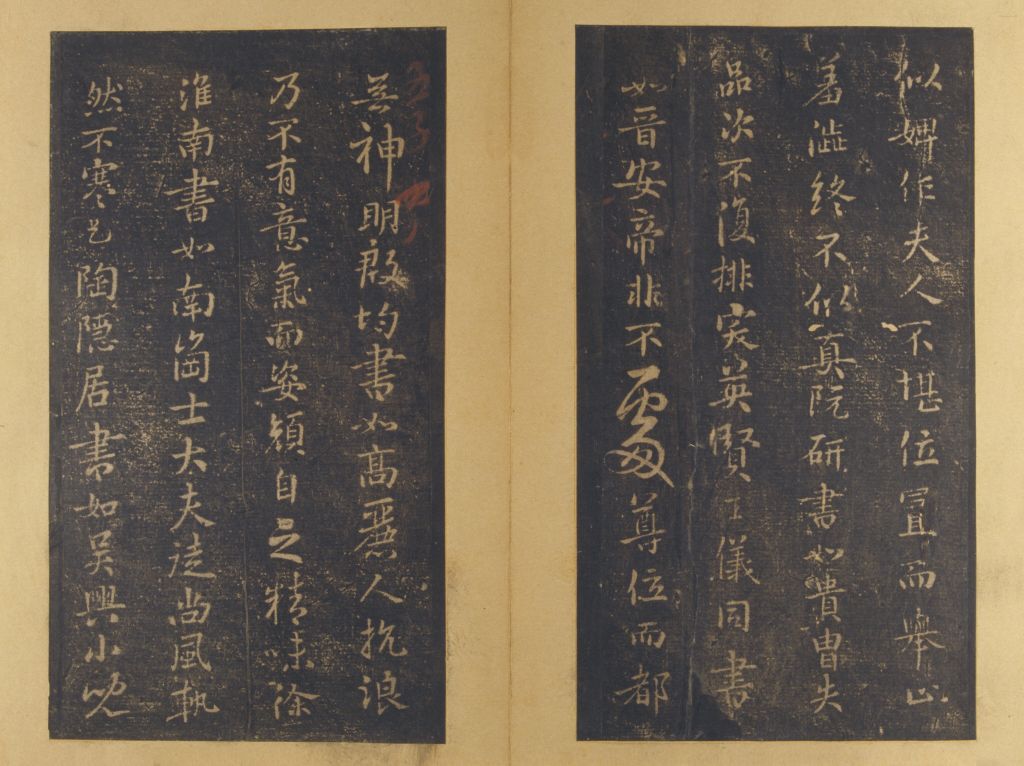 似婢作夫人不堪位置而舉止
羞澁終不似真阮研書如貴胄失
品次不復排突英賢王儀同書
如晉安帝非不處尊位而都
無神明殷均書如高麗人抗浪
乃不有意氣而姿顔自乏精味徐
淮南書如南崗士大夫徒尚風軌
然不寒乞陶隱居書如吳興小兒